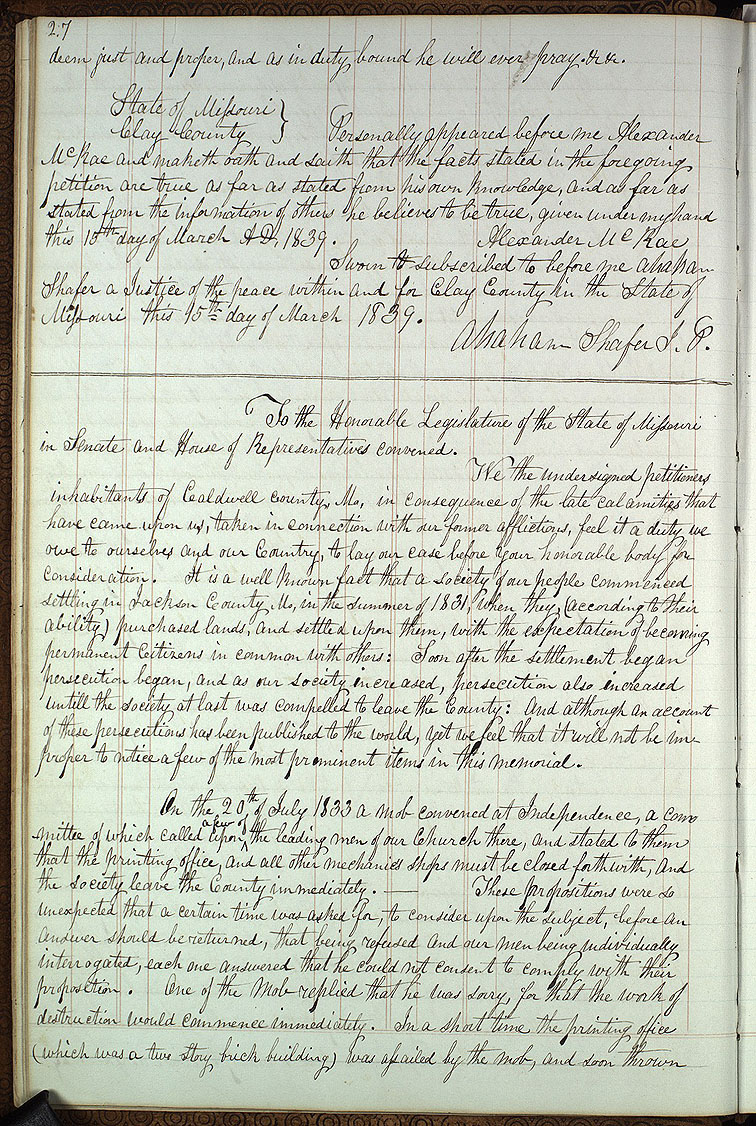 27
deem just and proper, and as in duty bound he will ever pray. &c &c.
State of Missouri }
Clay County
Personally appeared before me Alexander
McRae and maketh oath and saith that the facts stated in the foregoing
petition are true as far as stated from his own knowledge, and as far as
stated from the information of others he believes to be true, given under my hand
this 15th day of March A.D. 1839. Alexander McRae
Sworn to subscribed to before me Abraham
Shafer a Justice of the peace within and for Clay County in the State of
Missouri this 15th day of March 1839.
Abraham Shafer J. P.
To the Honorable Legislature of the State of Missouri
in Senate and House of Representatives convened.
We the undersigned petitioners
inhabitants of Caldwell County, Mo, in consequence of the late calamities that
have came upon us, taken in connection with our former afflictions, feel it a duty we
owe to ourselves and our Country, to lay our case before your honorable body for
consideration. It is a well known fact that a society of our people commenced
settling in Jackson County, Mo, in the summer of 1831, when they, (according to their
ability) purchased lands, and settled upon them, with the expectation of becoming
permanent Citizens in common with others: Soon after the settlement began
persecution began, and as our society increased, persecution also increased
untill the society at last was compelled to leave the County: And although an account
of these persecutions has been published to the world, yet we feel that it will not be im-
proper to notice a few of the most prominent items in this memorial.
On the 20th of July 1833 a mob convened at Independence, a com
mittee of which called upon a few of the leading men of our Church there, and stated to them
that the printing office, and all other mechanics shops must be closed forthwith, and
the society leave the County immediately. — These propositions were so
unexpected that a certain time was asked for, to consider upon the subject, before an
answer should be returned, that being refused and our men being individually
interrogated, each one answered that he could not consent to comply with their
proposition. One of the mob replied that he was sorry, for that the work of
destruction would commence immediately. In a short time the printing office
(which was a two story brick building) was assailed by the mob, and soon thrown